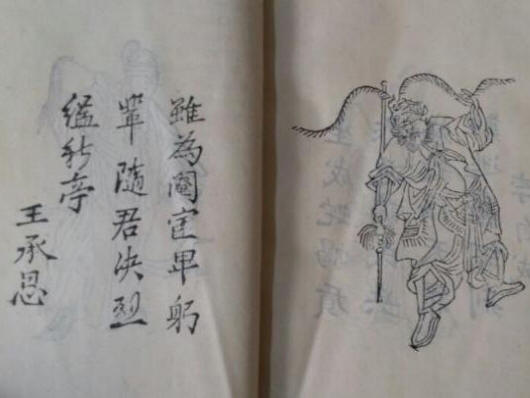 雖為閹宦卑躬
輩隨君决烈
縊於亭
王承恩